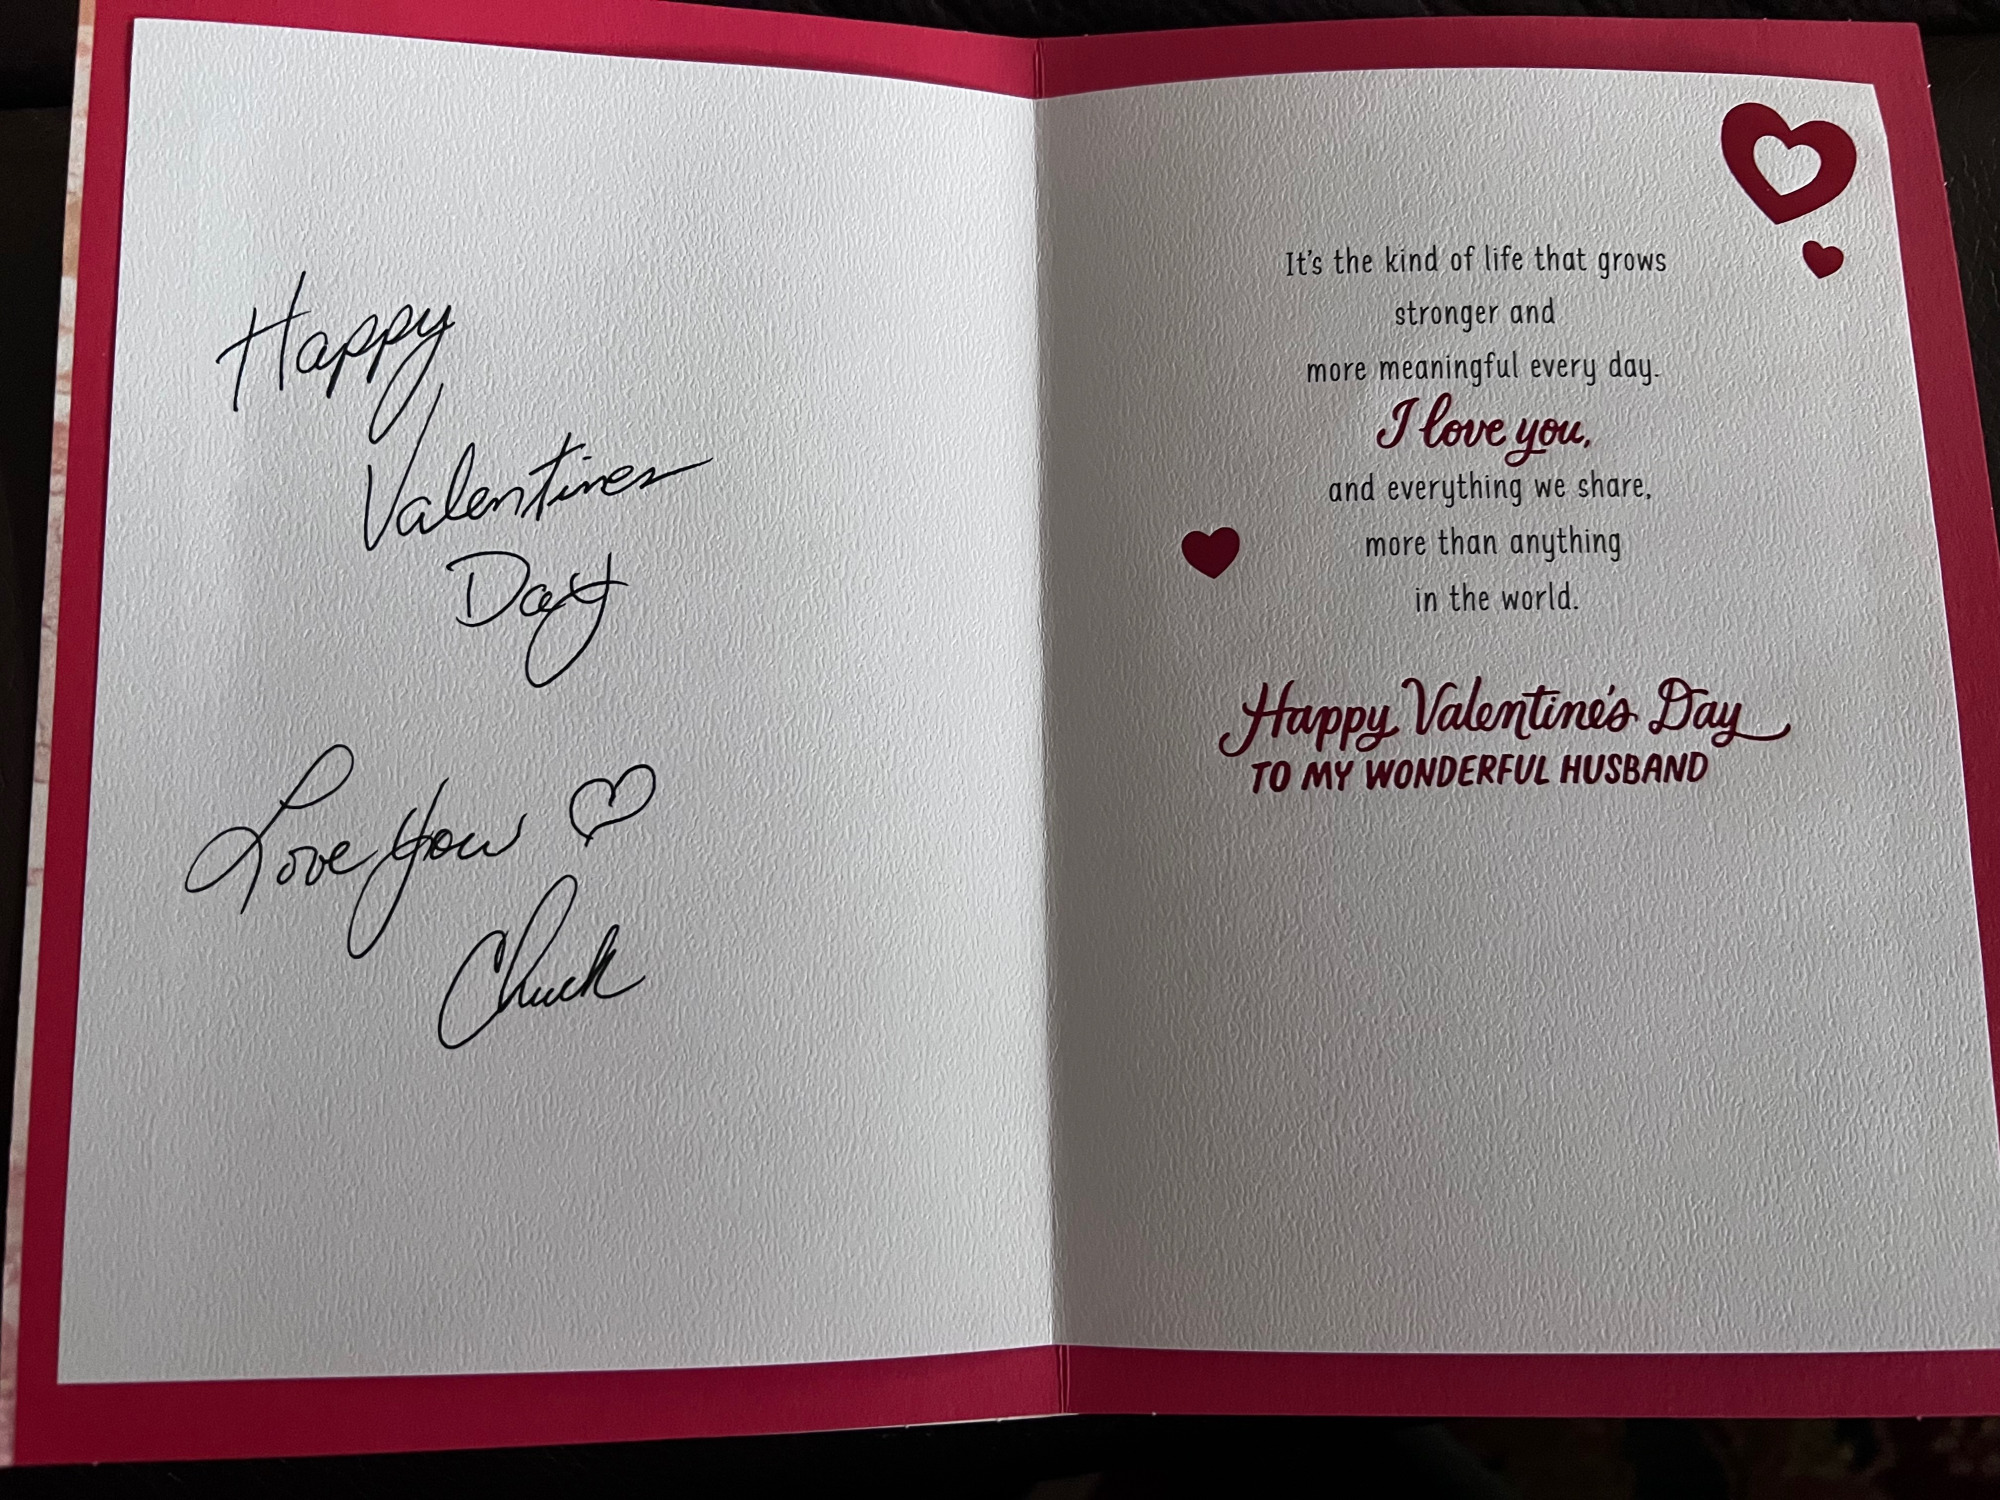 Happy
Valentines
Day
Love you
Chuck
It's the kind of life that grows
stronger and
more meaningful every day.
I love you,
and everything we share,
more than anything
in the world.
Happy Valentine's Day
TO MY WONDERFUL HUSBAND